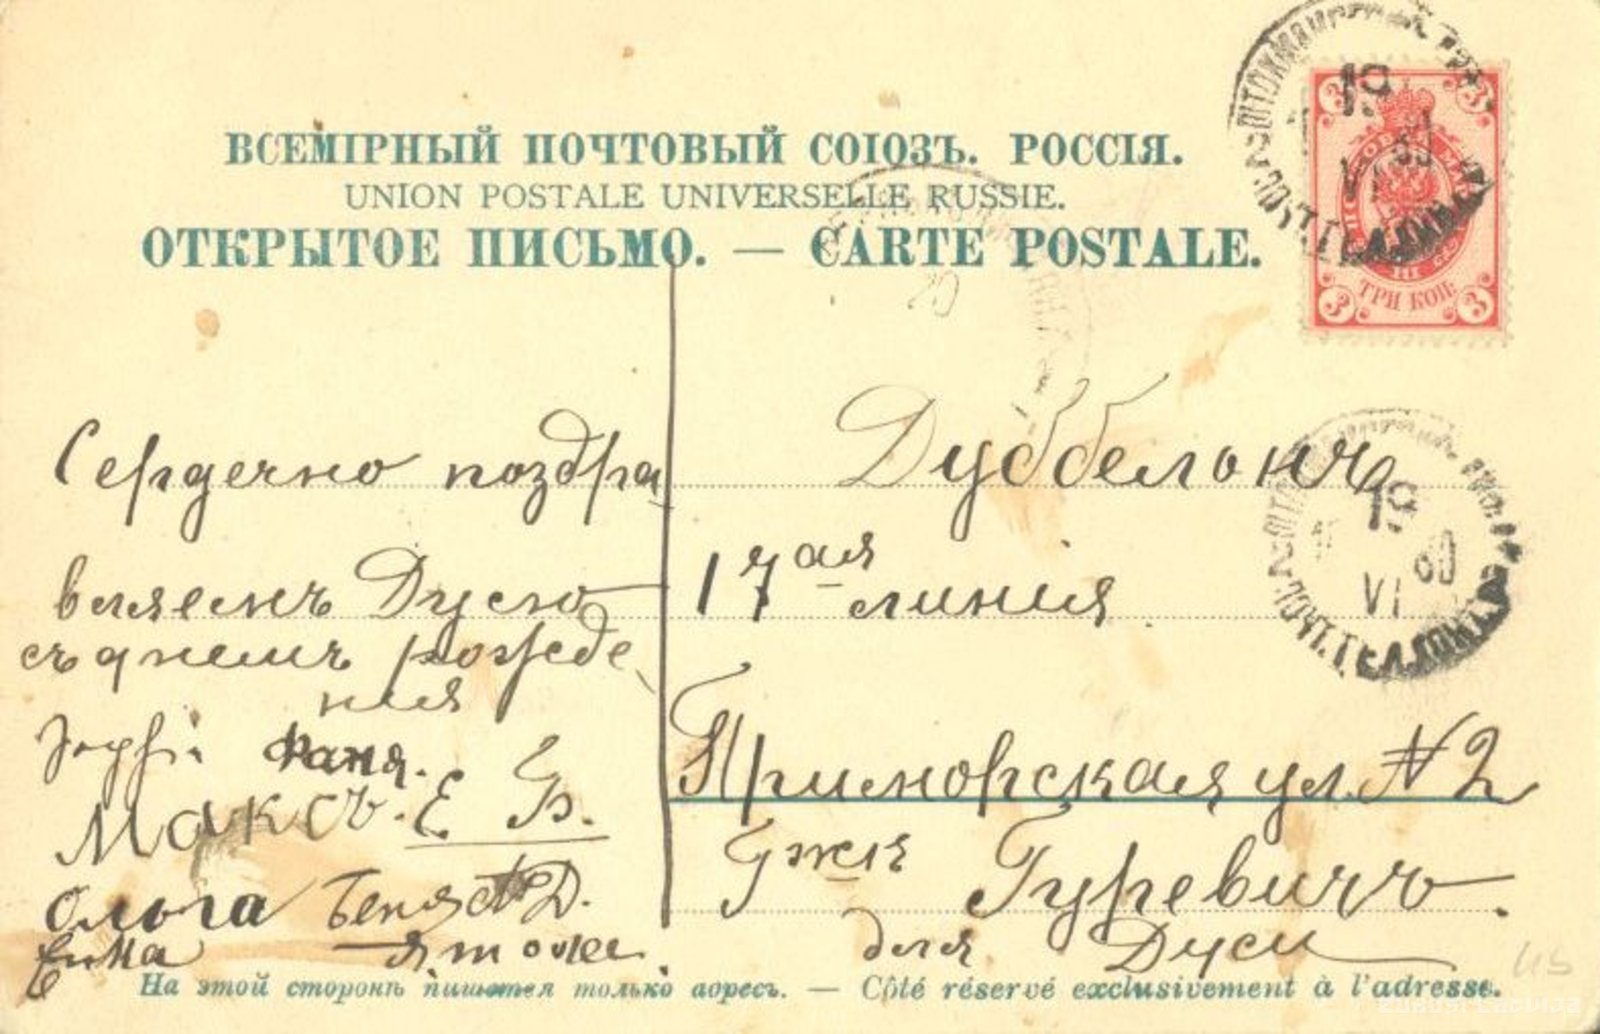 ВСЕМІРНЫЙ ПОЧТОВЫЙ СОЮЗЪ. РОССІЯ.
UNION POSTALE UNIVERSELLE RUSSIE.
ОТКРЫТОЕ ПИСЬМО. — CARTE POSTALE.
19
VI
3 3
3 ТРИ КОП. 3
Сердечно поздра
вляемъ Дусю
съ днемъ рожде
нія
Фаня.
Максъ. Е Б.
Ольга Беня Д.
Я тоже.
Дуббельнъ
17ая линія
Приморская ул. № 2
Г-жѣ Гуревичъ.
для Дуси
19
VI
На этой сторонѣ пишется только адресъ. — Côté réservé exclusivement à l'adresse.